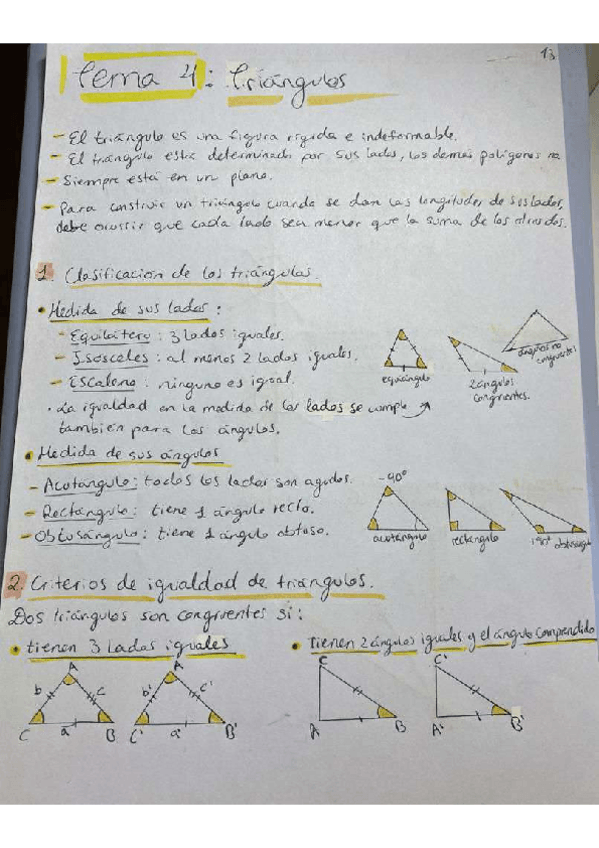 13
Tema 4: Triángulos
- El triángulo es una figura rígida e indeformable.
- El triángulo está determinado por sus lados, los demás polígonos no
- Siempre está en un plano.
- Para construir un triángulo cuando se dan las longitudes de sus lados,
debe ocurrir que cada lado sea menor que la suma de los otros dos.
1. Clasificación de los triángulos.
• Medida de sus lados:
- Equilátero: 3 lados iguales.
- Isósceles: al menos 2 lados iguales.
- Escaleno: ninguno es igual.
· La igualdad en la medida de los lados se cumple
también para los ángulos.
equiángulo
2 ángulos
congruentes.
ángulos no
congruentes
• Medida de sus ángulos
- Acutángulo: todos los lados son agudos.
- Rectángulo: tiene 1 ángulo recto.
- Obtusángulo: tiene 1 ángulo obtuso.
-90°
acutángulo
rectángulo
obtusángulo
2. Criterios de igualdad de triángulos.
Dos triángulos son congruentes si:
• tienen 3 lados iguales
• Tienen 2 ángulos iguales y el ángulo comprendido
A A' C C'
b c b' c'
C a B C' a' B' A B A' B'